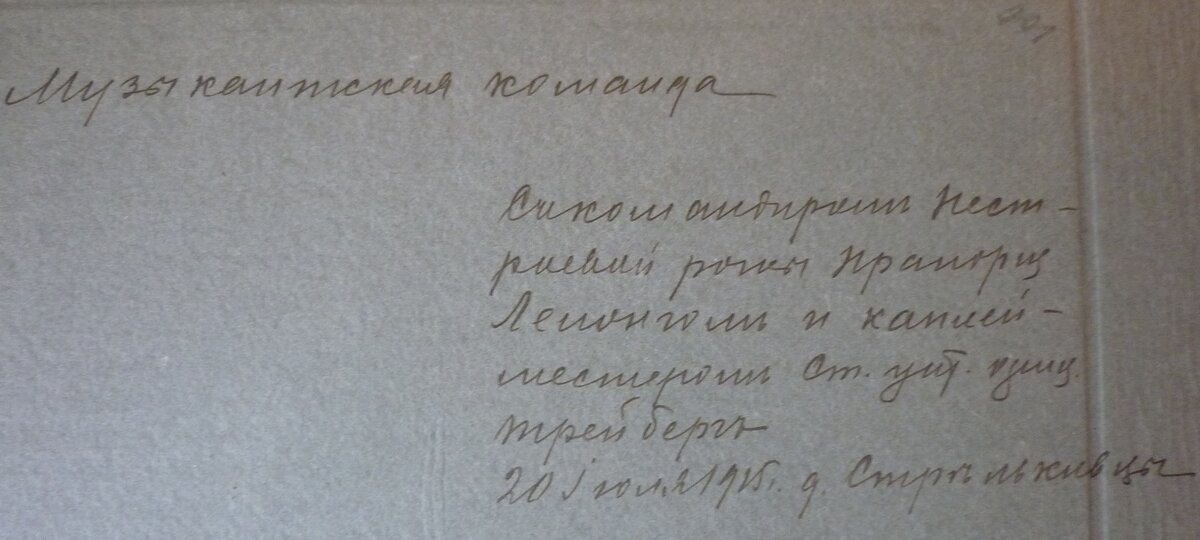 Музыкантская команда
Съ командиромъ Нест-
роевой роты Прапорщ
и капель-
мейстеромъ Ст. унт. офиц.
Трейбергъ
20 Iюля 1915г. д. Стрѣльковцы